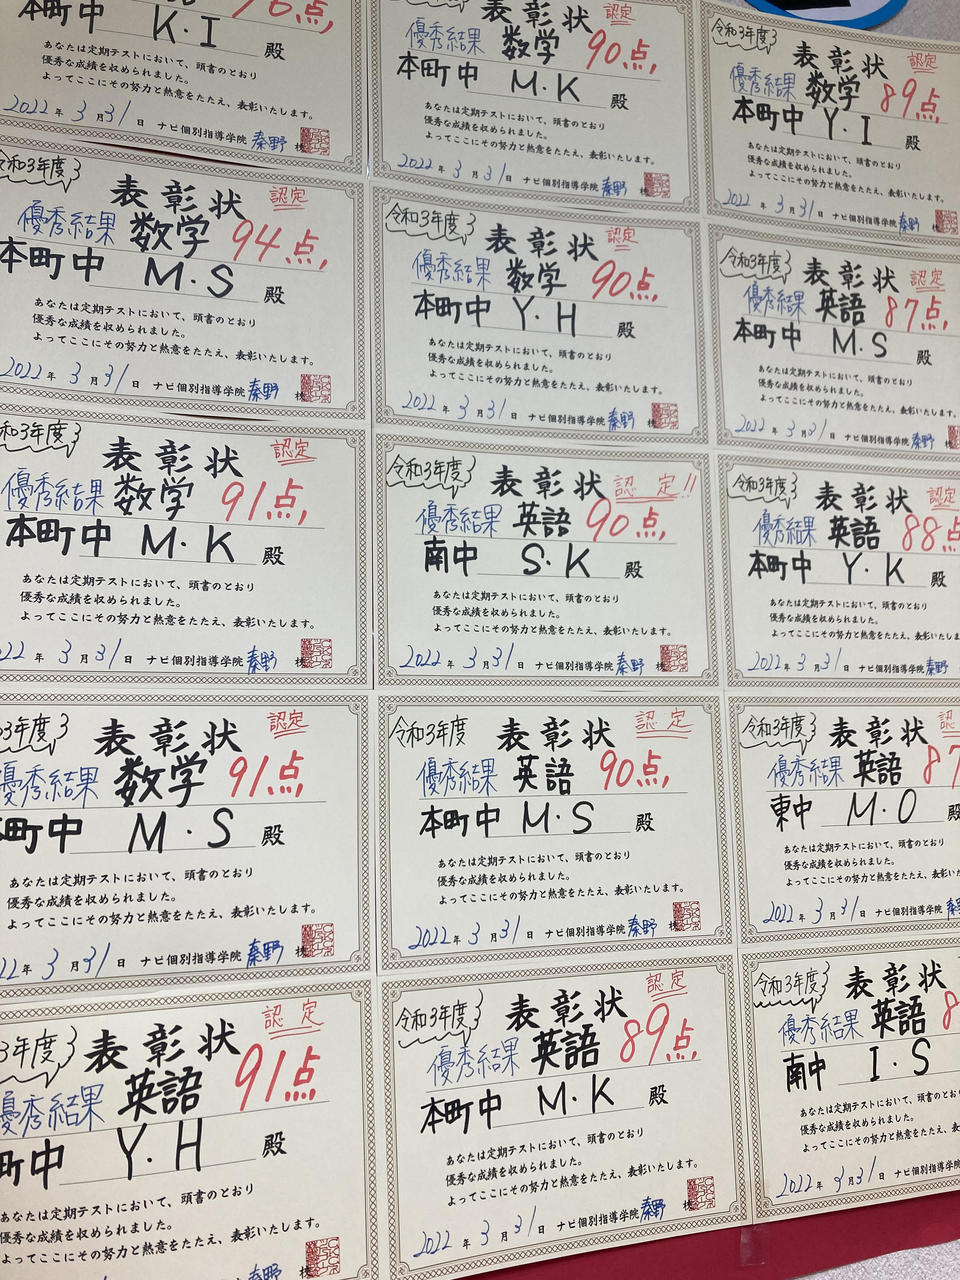 本町中 K.I
あなたは定期テストにおいて、頭書のとおり
優秀な成績を収められました。
よってここにその努力と熱意をたたえ、表彰いたします。
2022年 3月31日 ナビ個別指導学院 秦野 校
令和3年度
表彰状 認定
優秀結果 数学 94点,
本町中 M.S 殿
あなたは定期テストにおいて、頭書のとおり
優秀な成績を収められました。
よってここにその努力と熱意をたたえ、表彰いたします。
2022年 3月31日 ナビ個別指導学院 秦野 校
令和3年度
表彰状 認定
優秀結果 数学 91点,
本町中 M.K 殿
あなたは定期テストにおいて、頭書のとおり
優秀な成績を収められました。
よってここにその努力と熱意をたたえ、表彰いたします。
年 3月31日 ナビ個別指導学院 秦野 校
3年度
表彰状 認定
優秀結果 数学 91点,
本町中 M.S 殿
あなたは定期テストにおいて、頭書のとおり
優秀な成績を収められました。
よってここにその努力と熱意をたたえ、表彰いたします。
年 3月31日 ナビ個別指導学院 秦野 校
3年度
表彰状 認定
優秀結果 英語 91点
町中 Y.H 殿
あなたは定期テストにおいて、頭書のとおり
優秀な成績を収められました。
よってここにその努力と熱意をたたえ、表彰いたします。
認定
優秀結果 数学 90点,
本町中 M.K 殿
あなたは定期テストにおいて、頭書のとおり
優秀な成績を収められました。
よってここにその努力と熱意をたたえ、表彰いたします。
2022年 3月31日 ナビ個別指導学院 秦野 校
令和3年度
表彰状 認定
優秀結果 数学 90点,
本町中 Y.H 殿
あなたは定期テストにおいて、頭書のとおり
優秀な成績を収められました。
よってここにその努力と熱意をたたえ、表彰いたします。
2022年 3月31日 ナビ個別指導学院 秦野 校
令和3年度
表彰状 認定!!
優秀結果 英語 90点,
南中 S.K 殿
あなたは定期テストにおいて、頭書のとおり
優秀な成績を収められました。
よってここにその努力と熱意をたたえ、表彰いたします。
2022年 3月31日 ナビ個別指導学院 秦野 校
令和3年度
表彰状 認定
優秀結果 英語 90点,
本町中 M.S 殿
あなたは定期テストにおいて、頭書のとおり
優秀な成績を収められました。
よってここにその努力と熱意をたたえ、表彰いたします。
2022年 3月31日 ナビ個別指導学院 秦野 校
令和3年度
表彰状 認定
優秀結果 英語 89点,
本町中 M.K 殿
あなたは定期テストにおいて、頭書のとおり
優秀な成績を収められました。
よってここにその努力と熱意をたたえ、表彰いたします。
2022年 3月31日 ナビ個別指導学院 秦野 校
令和3年度
表彰状 認定
優秀結果 数学 89点,
本町中 Y.I 殿
あなたは定期テストにおいて、頭書のとおり
優秀な成績を収められました。
よってここにその努力と熱意をたたえ、表彰いたします。
2022年 3月31日 ナビ個別指導学院 秦野 校
令和3年度
表彰状 認定
優秀結果 英語 87点,
本町中 M.S 殿
あなたは定期テストにおいて、頭書のとおり
優秀な成績を収められました。
よってここにその努力と熱意をたたえ、表彰いたします。
2022年 3月31日 ナビ個別指導学院 秦野 校
令和3年度
表彰状 認定
優秀結果 英語 88点
本町中 Y.K 殿
あなたは定期テストにおいて、頭書のとおり
優秀な成績を収められました。
よってここにその努力と熱意をたたえ、表彰いたしま
2022年 3月31日 ナビ個別指導学院 秦野
令和3年度
表彰状 認
優秀結果 英語 87
東中 M.O 殿
あなたは定期テストにおいて、頭書のとおり
優秀な成績を収められました。
よってここにその努力と熱意をたたえ、表彰いた
2022年 3月31日 ナビ個別指導学院
令和3年度
表彰状
優秀結果 英語 8
南中 I.S
あなたは定期テストにおいて、頭書のと
優秀な成績を収められました。
よってここにその努力と熱意をたたえ、表
2022年 3月31日 ナビ個別指導学院